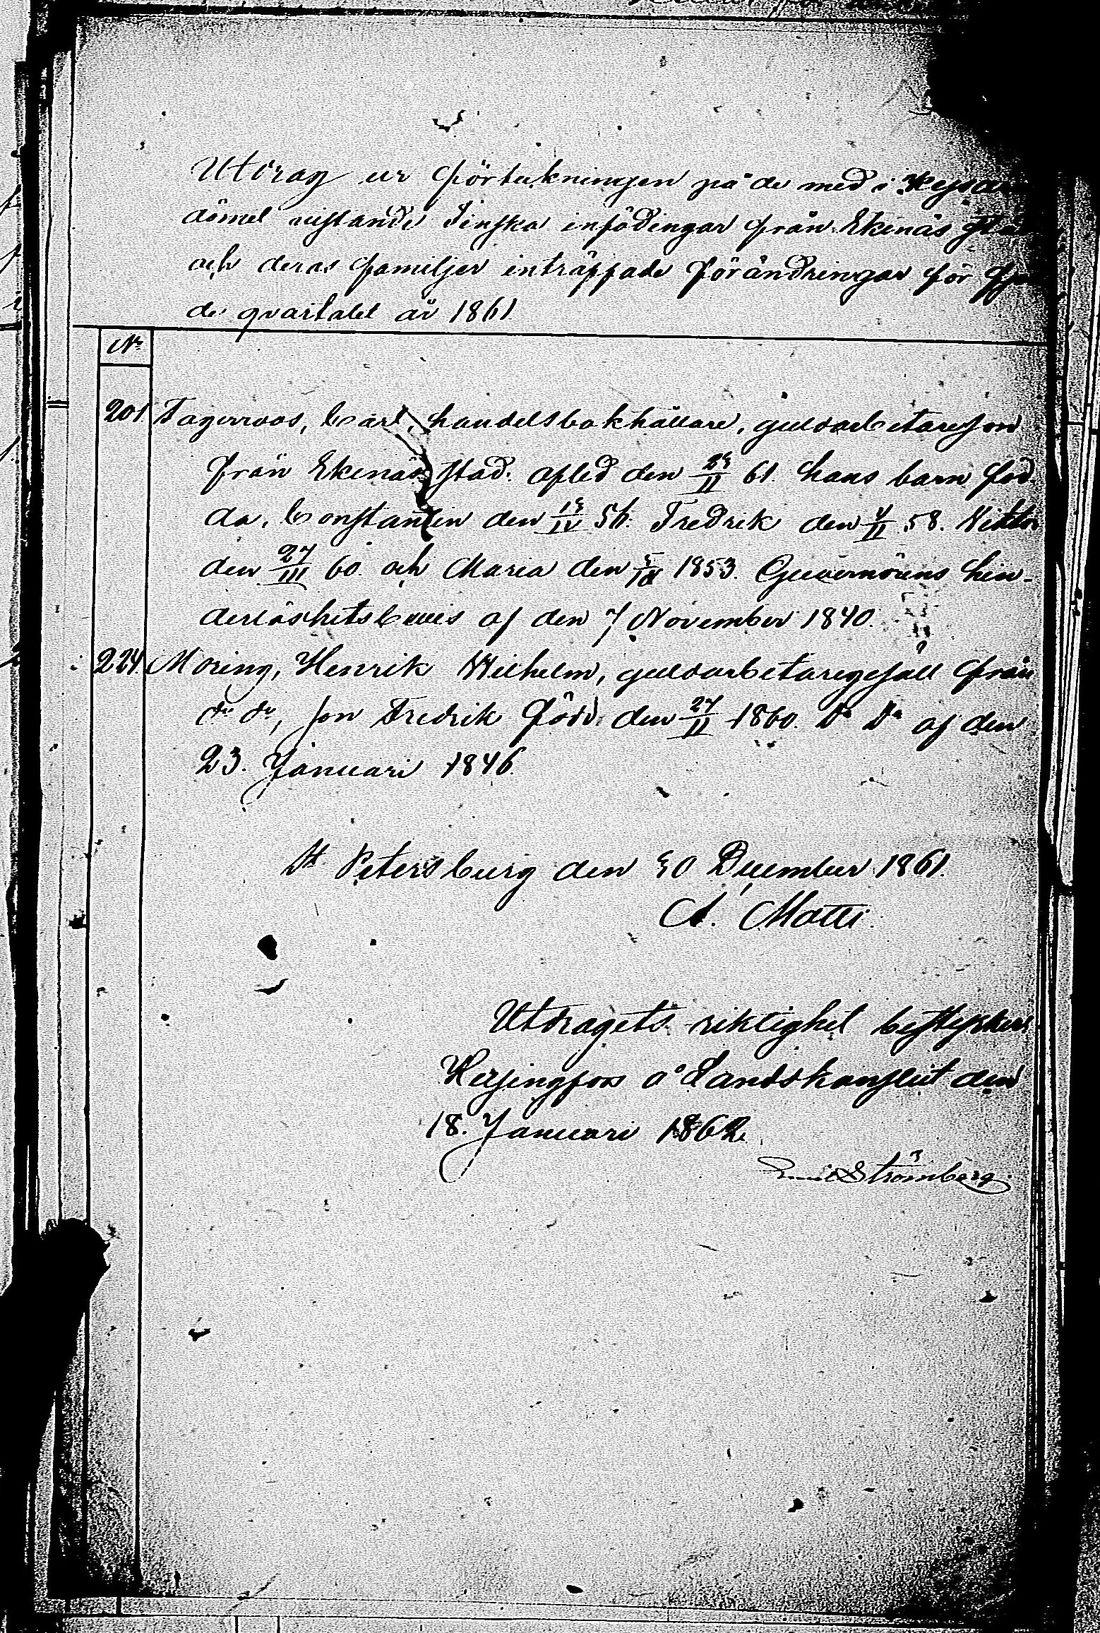 Utdrag ur förtekningen på de med i Kejsar
dömet vistande Finska infödingar från Ekenäs
och deras familjer inträffade förändringar för
de qvartalet år 1861
No
201. Fagerroos, Carl, handelsbokhållare, guldarbetareson
från Ekenäs stad. afled den II 61. hans barn föd
da, Constantin den 15/IV 56. Fredrik den 4/II 58. Viktor
den 27/III 60. och Maria den 1853. Guvernörens hin-
derlöshetsbevis af den 7 November 1840.
224. Moring, Henrik Wilhelm, guldarbetaregesäll från
do do, son Fredrik född den 27/II 1860. Do Do af den
23. Januari 1846.
St Petersburg den 30 December 1861.
A. Matti.
Utdragets riktighet bestyrker
Helsingfors å Landskansliet den
18. Januari 1862.
Emil Strömberg.